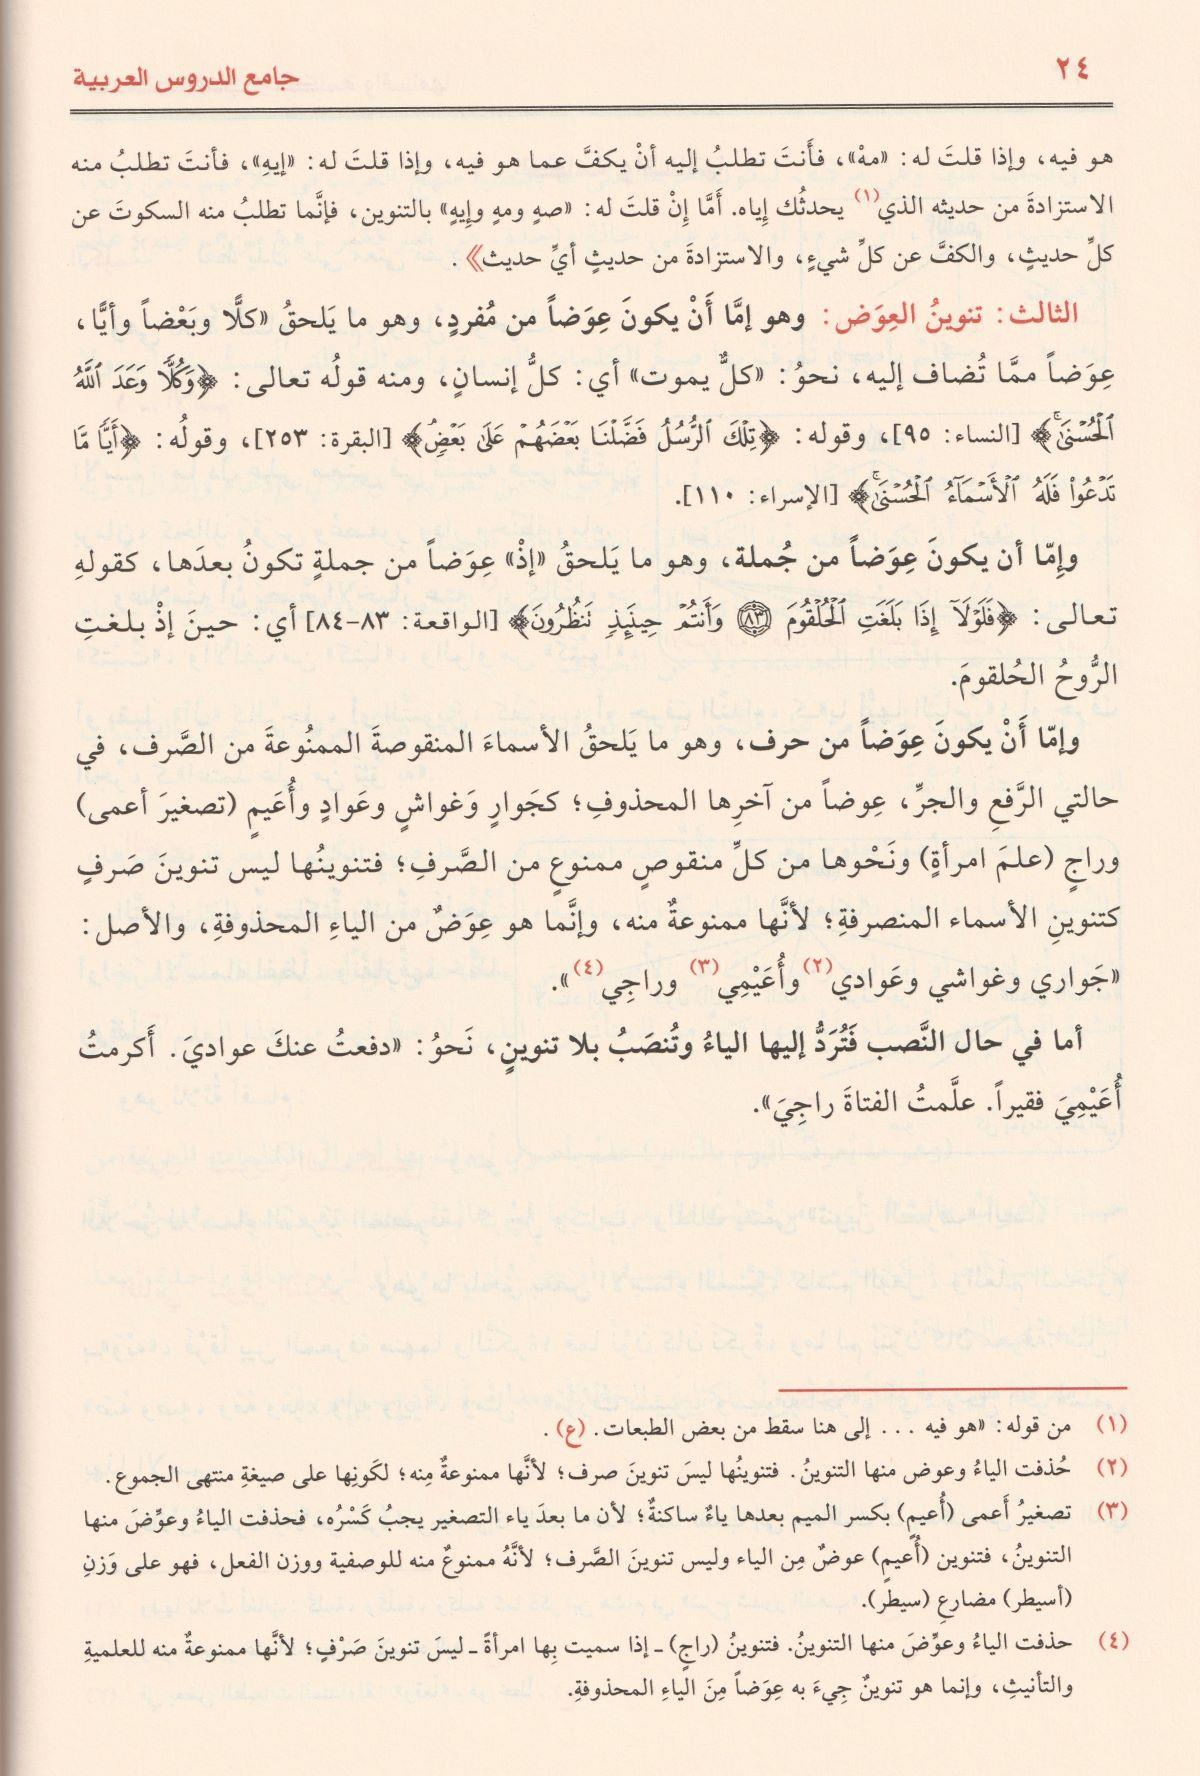 ٢٤
جامع الدروس العربية
هو فيه، وإذا قلتَ له: «مهْ»، فأَنتَ تطلبُ إليه أنْ يكفَّ عما هو فيه، وإذا قلتَ له: «إيهِ»، فأنتَ تطلبُ منه
الاستزادةَ من حديثه الذي(١) يحدثُك إياه. أمَّا إنْ قلتَ له: «صهٍ ومهٍ وإيهٍ» بالتنوين، فإنَّما تطلبُ منه السكوتَ عن
كلِّ حديثٍ، والكفَّ عن كلِّ شيءٍ، والاستزادةَ من حديثٍ أيِّ حديث».
الثالث: تنوينُ العِوَض: وهو إمَّا أَنْ يكونَ عِوَضاً من مُفردٍ، وهو ما يَلحقُ «كلًّا وبَعْضاً وأيًّا،
عِوَضاً ممَّا تُضاف إليه، نحوُ: «كلٌّ يموت» أي: كلُّ إنسانٍ، ومنه قولُه تعالى: ﴿وَكُلًّا وَعَدَ ٱللَّهُ
ٱلْحُسْنَىٰۚ﴾ [النساء: ٩٥]، وقوله: ﴿تِلْكَ ٱلرُّسُلُ فَضَّلْنَا بَعْضَهُمْ عَلَىٰ بَعْضٍۘ﴾ [البقرة: ٢٥٣]، وقولُه: ﴿أَيًّا مَّا
تَدْعُوا۟ فَلَهُ ٱلْأَسْمَآءُ ٱلْحُسْنَىٰۚ﴾ [الإسراء: ١١٠].
وإِمّا أن يكونَ عِوَضاً من جُملة، وهو ما يَلحقُ «إذْ» عِوَضاً من جملةٍ تكونُ بعدَها، كقولهِ
تعالى: ﴿فَلَوْلَآ إِذَا بَلَغَتِ ٱلْحُلْقُومَ ۝٨٣ وَأَنتُمْ حِينَئِذٍ تَنظُرُونَ﴾ [الواقعة: ٨٣-٨٤] أي: حينَ إذْ بلغتِ
الرُّوحُ الحُلقومَ.
وإمّا أَنْ يكونَ عِوَضاً من حرف، وهو ما يَلحقُ الأسماءَ المنقوصةَ الممنُوعةَ من الصَّرف، في
حالتي الرَّفعِ والجرِّ، عِوضاً من آخرِها المحذوفِ؛ كجَوارٍ وَغواشٍ وعَوادٍ وأُعَيمٍ (تصغيرَ أعمى)
وراجٍ (علمَ امرأةٍ) ونَحْوها من كلِّ منقوصٍ ممنوعٍ من الصَّرفِ؛ فتنوينُها ليس تنوينَ صَرفٍ
كتنوينِ الأسماء المنصرفةِ؛ لأنَّها ممنوعةٌ منه، وإنَّما هو عِوَضٌ من الياءِ المحذوفةِ، والأصل:
«جَواري وغواشي وعَوادي(٢) وأُعَيْمِي(٣) وراجِي(٤)».
أما في حال النَّصب فَتُرَدُّ إليها الياءُ وتُنصَبُ بلا تنوينٍ، نَحوُ: «دفعتُ عنكَ عواديَ. أَكرمتُ
أُعَيْمِيَ فقيراً. علَّمتُ الفتاةَ راجِيَ».
(١) من قوله: «هو فيه ... إلى هنا سقط من بعض الطبعات. (ع).
(٢) حُذفت الياءُ وعوض منها التنوينُ. فتنوينُها ليسَ تنوينَ صرف؛ لأنَّها ممنوعةٌ مِنه؛ لكَونِها على صيغةِ منتهى الجموع.
(٣) تصغيرُ أَعمى (أُعيمٍ) بكسر الميم بعدها ياءٌ ساكنةٌ؛ لأن ما بعدَ ياء التصغير يجبُ كَسْرُه، فحذفت الياءُ وعوِّضَ منها
التنوينُ، فتنوين (أُعيمٍ) عوضٌ مِن الياء وليس تنوينَ الصَّرف؛ لأنَّهُ ممنوعٌ منه للوصفية ووزن الفعل، فهو على وَزنِ
(أسيطر) مضارعِ (سيطر).
(٤) حذفت الياءُ وعوِّضَ منها التنوينُ. فتنوينُ (راجٍ) ـ إذا سميت بِها امرأةً ـ ليسَ تنوينَ صَرْفٍ؛ لأنَّها ممنوعةٌ منه للعلميةِ
والتأنيثِ، وإنما هو تنوينٌ جِيءَ به عِوَضاً مِنَ الياءِ المحذوفةِ.